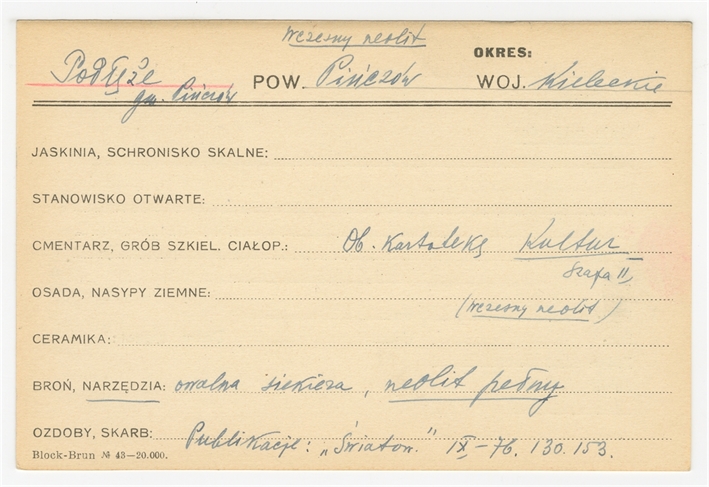 wczesny neolit
OKRES:
Podłęże POW. Pińczów WOJ. Kieleckie
gm. Pińczów
JASKINIA, SCHRONISKO SKALNE:
STANOWISKO OTWARTE:
CMENTARZ, GRÓB SZKIEL. CIAŁOP.: Ob. Kartotekę Kultur
Szafa II,
OSADA, NASYPY ZIEMNE:
(wczesny neolit)
CERAMIKA:
BROŃ, NARZĘDZIA: owalna siekiera, neolit pełny
OZDOBY, SKARB: Publikacje: „Światow." IX-76. 130. 153.
Block-Brun № 43-20.000.